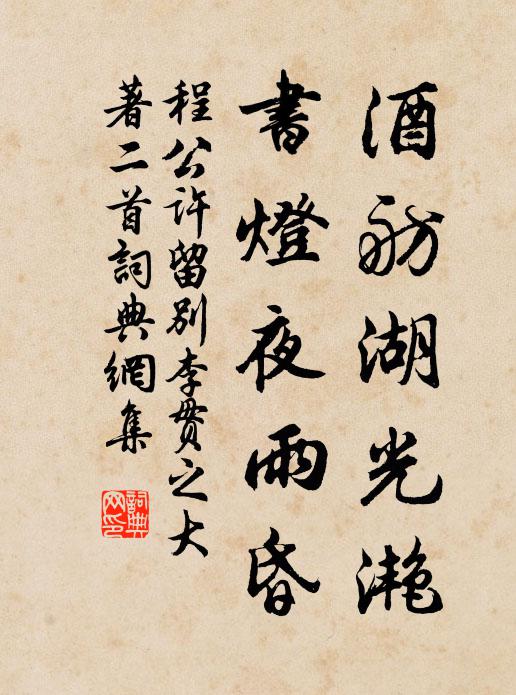 酒舫湖光灔
書燈夜雨昏
程公許留別李貫之大
著二首詞典網集
詞典
网印